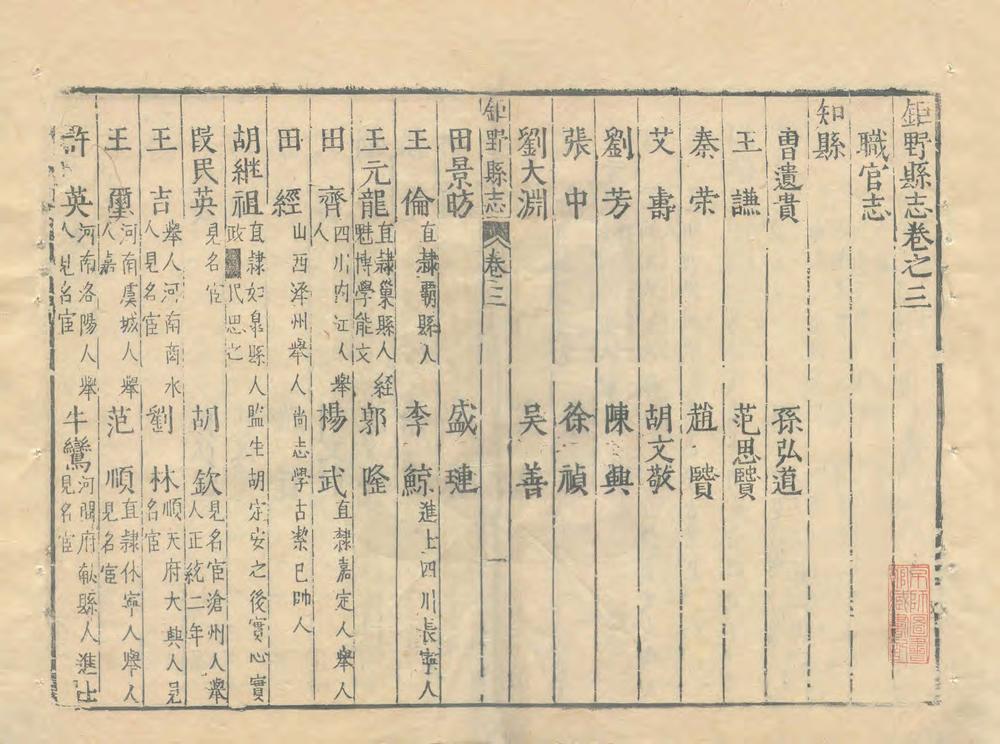 鉅野縣志卷之三
職官志
知縣
曹遺貴 孫弘道
王謙 范思賢
秦荣 趙賢
艾壽 胡文敬
劉芳 陳興
張中 徐禎
劉大淵 吴善
鉅野縣志 卷三 一
田景昉 盛璉
王倫 直隸霸縣人 李鯨 進士四川長寧人
王元龍 直隸巢縣人經魁博學能文 郭隆
田齊 四川内江人舉人 楊武 直隸嘉定人舉人
田經 山西澤州舉人尚志學古潔己帥人
胡繼祖 直隸如皐縣人監生胡定安之後實心實政民思之
段民英 見名宦 胡欽 見名宦滄州人舉人正統二年
王吉 舉人河南商水人見名宦 劉林 順天府大興人見名宦
王璽 河南虞城人舉人嘉 范順 直隸休寧人舉人見名宦
許英 河南洛陽人舉人見名宦 牛鸞 河間府献縣人進士見名宦